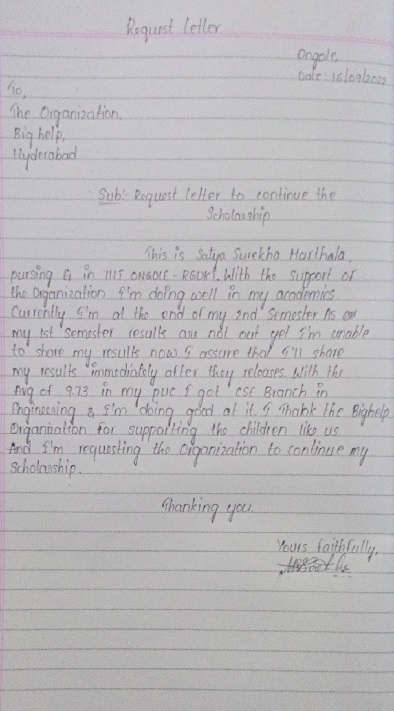 Request letter
Ongole
Date: 16/09/2022
To,
The Organization,
Big help,
Hyderabad
Sub:- Request letter to continue the
Scholarship
This is Satya Surekha Marthala,
pursing E1 in IIIT ONGOLE-RGUKT. With the support of
the Organization I'm doing well in my academics.
Currently I'm at the end of my 2nd Semester As
my 1st Semester results are not out yet I'm unable
to share my results now. I assure that I'll share
my results immediately after they releases. With the
Avg of 9.73 in my puc I got CSE Branch in
Engineering & I'm doing good at it. I Thank the Bighelp
Organization for supporting the children like us.
And I'm requesting the Organization to continue my
Scholarship.
Thanking you
Yours faithfully,